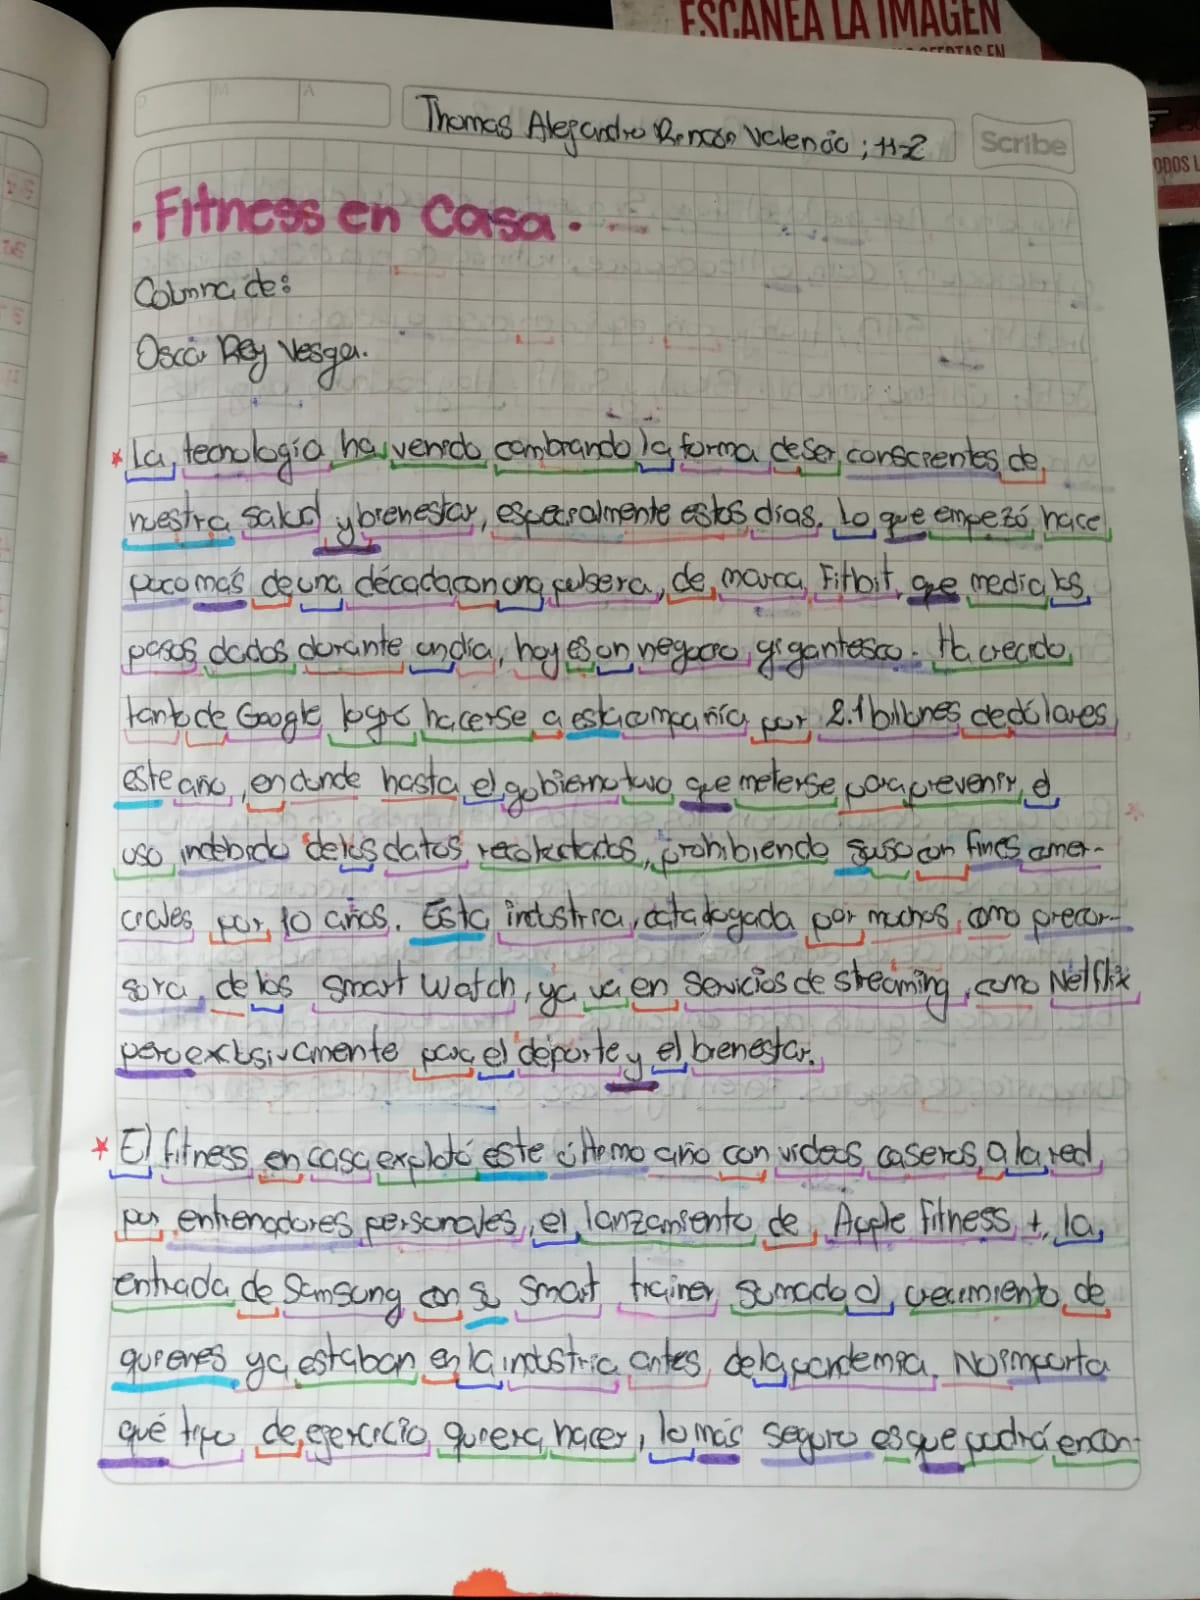 ESCANEA LA IMAGEN
OFERTAS EN
ODOS L
D M A
Thomas Alejandro Rincón Valencia ; 11-2
Scribe
· Fitness en Casa ·
Columna de:
Oscar Rey Vesga.
* La tecnología ha venido cambiando la forma de ser conscientes de
nuestra salud y bienestar, especialmente estos días. Lo que empezó hace
poco más de una década con una pulsera, de marca Fitbit, que media los
pasos dados durante un día, hoy es un negocio gigantesco. Ha crecido
tanto de Google logró hacerse a esta compañía por 2.1 billones de dólares
este año, en donde hasta el gobierno tuvo que meterse para prevenir el
uso indebido de los datos recolectados, prohibiendo su uso con fines comer-
ciales por 10 años. Esta industria, catalogada por muchos como precur-
sora de los Smart Watch, ya va en servicios de streaming, como Netflix
pero exclusivamente para el deporte y el bienestar.
* El fitness en casa explotó este último año con videos caseros a la red
por entrenadores personales, el lanzamiento de Apple Fitness +, la
entrada de Samsung con su Smart trainer sumado al crecimiento de
quienes ya estaban en la industria antes de la pandemia. No importa
qué tipo de ejercicio quiera hacer, lo más seguro es que podrá encon-